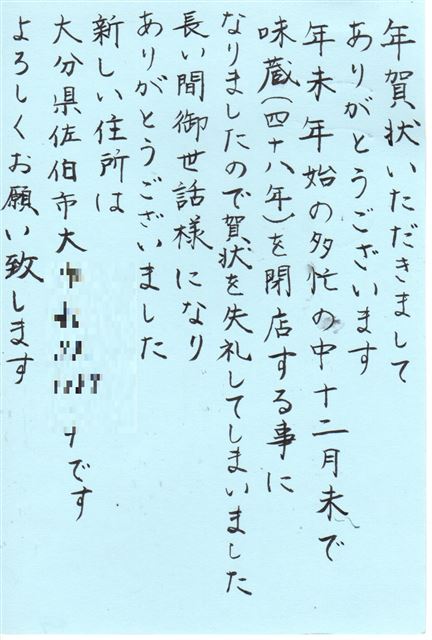 年賀状いただきまして
ありがとうございます
年末年始の多忙の中十二月末で
味蔵(四十八年)を閉店する事に
なりましたので賀状を失礼してしまいました
長い間御世話様になり
ありがとうございました
新しい住所は
大分県佐伯市大
です
よろしくお願い致します